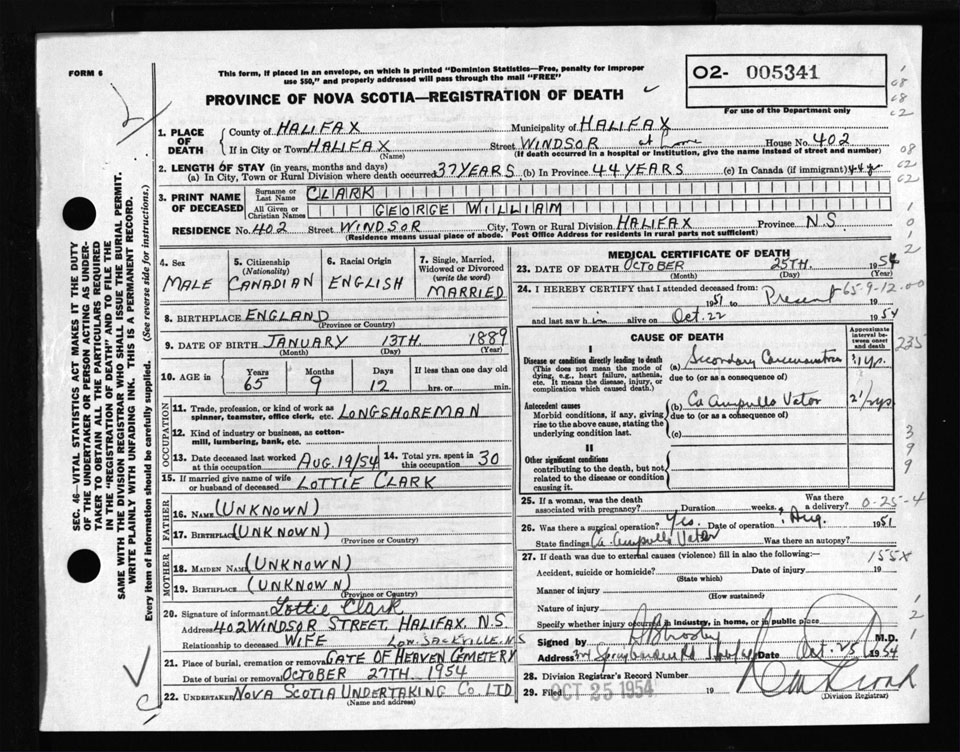 FORM 6
This form, if placed in an envelope, on which is printed "Dominion Statistics—Free, penalty for improper
use $50," and properly addressed will pass through the mail "FREE"
PROVINCE OF NOVA SCOTIA—REGISTRATION OF DEATH
O2- 005341
For use of the Department only
1. PLACE OF DEATH
County of HALIFAX Municipality of HALIFAX
If in City or Town HALIFAX (Name) Street WINDSOR at home House No. 402
(If death occurred in a hospital or Institution, give the name instead of street and number)
2. LENGTH OF STAY (in years, months and days)
(a) In City, Town or Rural Division where death occurred 37 YEARS (b) In Province 44 YEARS (c) In Canada (if immigrant) 44 yr
3. PRINT NAME OF DECEASED
Surname or Last Name CLARK
All Given or Christian Names GEORGE WILLIAM
RESIDENCE No. 402 Street WINDSOR City, Town or Rural Division HALIFAX Province N.S.
(Residence means usual place of abode. Post Office Address for residents in rural parts not sufficient)
4. Sex MALE
5. Citizenship (Nationality) CANADIAN
6. Racial Origin ENGLISH
7. Single, Married, Widowed or Divorced (write the word) MARRIED
8. BIRTHPLACE ENGLAND
(Province or Country)
9. DATE OF BIRTH JANUARY 13TH. 1889
(Month) (Day) (Year)
10. AGE in Years 65 Months 9 Days 12 If less than one day old
hrs. or min.
OCCUPATION
11. Trade, profession, or kind of work as spinner, teamster, office clerk, etc. LONGSHOREMAN
12. Kind of industry or business, as cotton-mill, lumbering, bank, etc.
13. Date deceased last worked at this occupation AUG. 19/54
14. Total yrs. spent in this occupation 30
15. If married give name of wife or husband of deceased LOTTIE CLARK
FATHER
16. NAME (UNKNOWN)
17. Birthplace (UNKNOWN)
(Province or Country)
MOTHER
18. MAIDEN NAME (UNKNOWN)
19. BIRTHPLACE (UNKNOWN)
(Province or Country)
20. Signature of informant Lottie Clark
Address 402 WINDSOR STREET, HALIFAX, N.S.
Relationship to deceased WIFE
LOW. SACKVILLE, N.S
21. Place of burial, cremation or removal GATE OF HEAVEN CEMETERY
Date of burial or removal OCTOBER 27TH. 1954
22. UNDERTAKER NOVA SCOTIA UNDERTAKING CO. LTD
(Name and address)
MEDICAL CERTIFICATE OF DEATH
23. DATE OF DEATH OCTOBER 25TH. 1954
(Month) (Day) (Year)
24. I HEREBY CERTIFY that I attended deceased from:
1951 to Present 19
65-9-12-00
and last saw him alive on Oct. 22 1954
CAUSE OF DEATH
Approximate interval between onset and death
I
Disease or condition directly leading to death
(This does not mean the mode of dying, e.g., heart failure, asthenia, etc. It means the disease, injury, or complication which caused death.)
(a) Secondary
due to (or as a consequence of)
Antecedent causes
Morbid conditions, if any, giving rise to the above cause, stating the underlying condition last.
(b) Ca Ampulla Vater
due to (or as a consequence of)
(c)
II
Other significant conditions
contributing to the death, but not related to the disease or condition causing it.
25. If a woman, was the death associated with pregnancy? Duration weeks; Was there a delivery?
0-25-4
26. Was there surgical operation? Yes. Date of operation Aug. 1951
State findings Ca. Ampulla Vater Was there an autopsy?
27. If death was due to external causes (violence) fill in also the following:—
155X
Accident, suicide or homicide? (State which) Date of injury 19
Manner of injury
(How sustained)
Nature of injury
Specify whether injury occurred in industry, in home, or in public place
Signed by M.D.
Address Date Oct. 25 1954
28. Division Registrar's Record Number
29. Filed OCT 25 1954 19
(Division Registrar)
SEC. 46—VITAL STATISTICS ACT MAKES IT THE DUTY
OF THE UNDERTAKER OR PERSON ACTING AS UNDER-
TAKER TO OBTAIN ALL THE PARTICULARS REQUIRED
IN THE "REGISTRATION OF DEATH" AND TO FILE THE
SAME WITH THE DIVISION REGISTRAR WHO SHALL ISSUE THE BURIAL PERMIT.
WRITE PLAINLY WITH UNFADING INK. THIS IS A PERMANENT RECORD.
Every item of information should be carefully supplied. (See reverse side for instructions.)